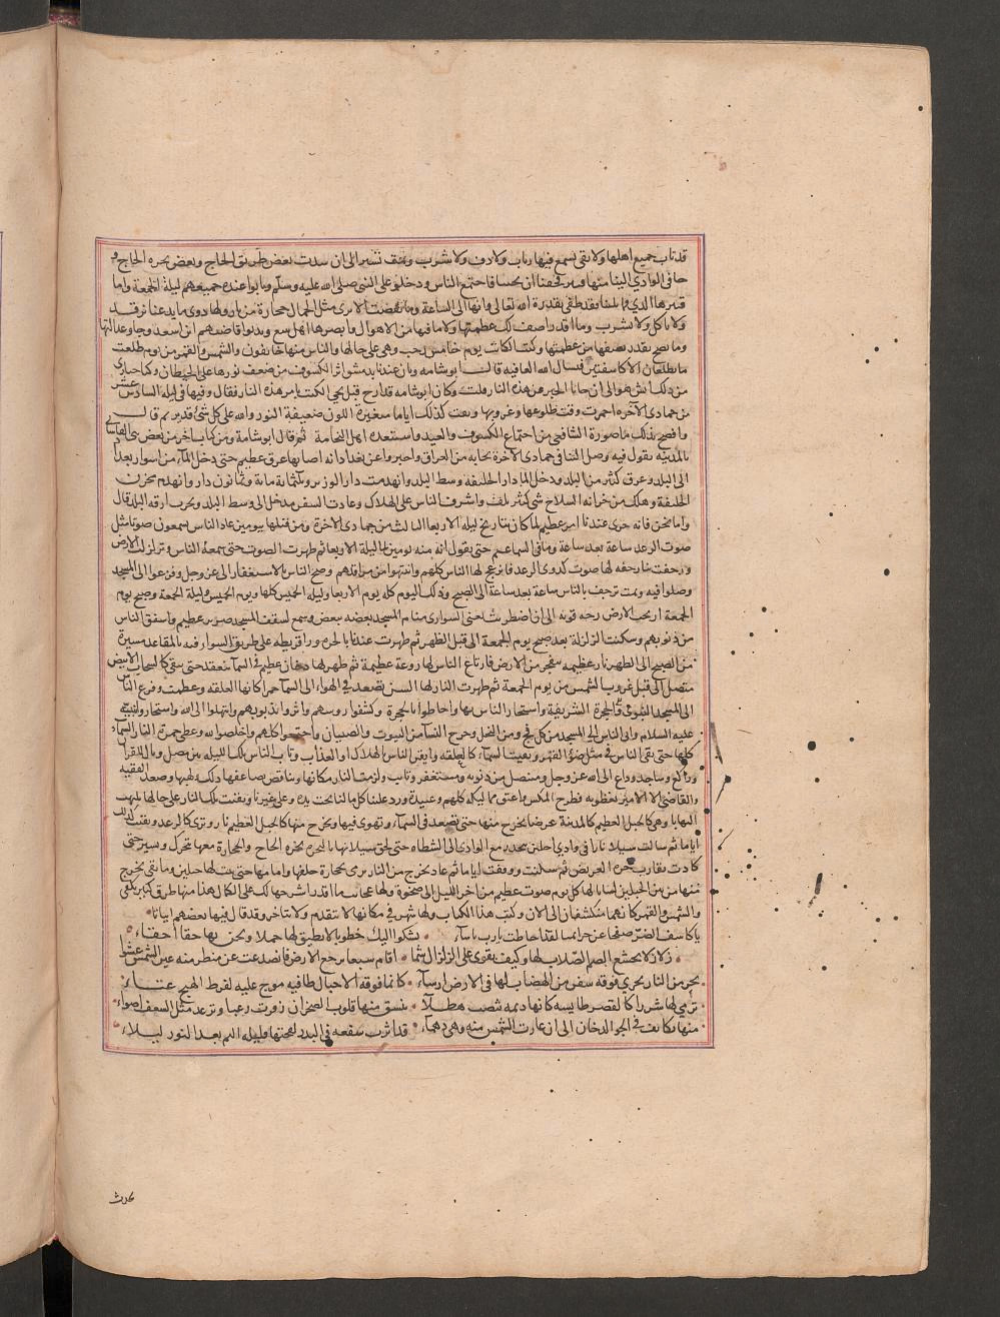 قد تاب جميع اهلها ولا بقى يسمع فيها رباب ولا دف ولا شرب وتمت تسير الى ان سدت بعض طريق الحاج وبعض بحره الحاج و
حافى الوادي الينا منها وخفنا ان يجينا فاجتمع الناس ودخلوا على النبي صلى الله عليه وسلم وباتوا عنده جميعهم ليلة الجمعة واما
قتيرها الذي يلينا فقد طفى بقدرة الله تعالى وانها الى الساعة وما نقصت الا ترى مثل الجمال حجارة من نار ولها دوى ما يدعنا نرقد
ولا ناكل ولا نشرب وما اقدر اصف لك عظمتها ولا ما فيها من الاهوال وابصرها اهل ينبع وندبوا قاضيهم ابن اسعد وجا وعدا اليها
وما صبح يقدر يصفها من عظمتها وكتب الكتاب يوم خامس رجب وهي على حالها والناس منها خائفون والشمس والقمر من يوم طلعت
ما يطلعان الا كاسفتين فنسال الله العافيه قال ابو شامه وبان عندنا بدمشق اثر الكسوف من ضعف نورها على الحيطان وكنا حيارى
من ذلك ايش هو الى ان جانا الخبر عن هذه النار قلت وكان ابو شامه قد ارخ قبل مجي الكتب بامر هذه النار فقال وفيها في ليلة السادس عشر
من جمادى الآخره
واضح بذلك ما صورة الشافعي من اجتماع الكسوف والعيد واستبعده اهل النجامة ثم قال ابو شامة ومن كتاب اخر من بعض بني الفاساني
بالمدينه يقول فيه وصل الينا في جمادى الآخرة نجابه من العراق واخبروا عن بغداد انه اصابها غرق عظيم حتى دخل الماء من اسوار بغداد
الى البلد وغرق كثير من البلد ودخل الماء دار الخليفه وسط البلد وانهدمت دار الوزير وثلثمائة مائة وثمانون دار وانهدم مخزن
الخليفة وهلك من خزانة السلاح شي كثير تلف واشرف الناس على الهلاك وعادت السفن تدخل الى وسط البلد وتخرب ازقه البلد قال
واما نحن فانه جرى عندنا امر عظيم لما كان بتاريخ ليلة الاربعا الثالث من جمادى الاخرة ومن قبلها بيومين عاد الناس يسمعون صوتا مثل
صوت الرعد ساعة بعد ساعة وما في السما غيم حتى نقول انه منه يومين الى ليلة الاربعا ثم ظهرت الصوت حتى سمعه الناس وتزلزلت الارض
ورجفت بنا رجفه لها صوت كدوى الرعد فانزعج لها الناس كلهم وانتبهوا من مراقدهم وضج الناس بالاستغفار الى عز وجل وفزعوا الى المسجد
وصلوا فيه وتمت ترجف بالناس ساعة بعد ساعة الى الصبح وذلك اليوم كله يوم الاربعا وليلة الخميس كلها ويوم الخميس وليلة الجمعة وصبح يوم
الجمعة ارتجت الارض رجه قوية الى ان اضطرب منار المسجد بعضه ببعض وسمع لسقف المسجد صرير عظيم واشفق الناس
من ذنوبهم وسكنت الزلزلة بعد صبح يوم الجمعة الى قبل الظهر ثم ظهرت عندنا بالحره ورا قريظه على طريق السوارقيه بالمقاعد مسيرة
من الصبح الى الظهر نار عظيمه تنفجر من الارض فارتاع الناس لها روعة عظيمة ثم ظهر لها دخان عظيم في السماء ينعقد حتى يبقى كالسحاب الابيض
متصل الى قبل غروب الشمس من يوم الجمعة ثم ظهرت النار لها السن تصعد في الهواء الى السما حمرا كانها العلقه وعظمت وفزع الناس
الى المسجد النبوي والحجرة الشريفية واستجار الناس بها واحاطوا بالحجرة وكشفوا روسهم واقروا بذنوبهم وابتهلوا الى الله واستجاروا بنبيه
عليه السلام واتى الناس الى المسجد من كل فج ومن النخل وخرج النسا من البيوت والصبيان واجتمعوا كلهم واخلصوا لله وغطى حمرة النار السماء
كلها حتى بقى الناس في مثل ضوء القمر وبقيت السماء كالعلقه وايقن الناس بالهلاك او العذاب وتاب الناس تلك الليله بين مصل وتال للقران
وراكع وساجد وداع الى الله عز وجل ومتنصل من ذنوبه ومستغفر وتايب ولزمت النار مكانها وتناقص تضاعفها ذلك ولهبها وصعد الفقيه
والقاضي الى الامير يعظونه فطرح المكس واعتق مماليكه كلهم وعبيده ورد علينا كل ما لنا تحت يده وعلى غيرنا وبقيت تلك النار على حالها تلتهب
التهابا وهي كالجبل العظيم كالمدينة عرضا يخرج منها حتى تصعد في السماء وتهوى فيها ويخرج منها كالجبل العظيم نار وترى كالرعد وبقيت كذلك
اياما ثم سالت سيلانا في وادي احلين تنحدر مع الوادي الى الشظاه حتى لحق سيلانها بالبحره بحره الحاج والحجارة معها تتحرك وتسير حتى
كادت تقارب حره العريض ثم سكنت ووقفت اياما ثم عاد يخرج من النار ترمى بحجارة خلفها وامامها حتى بنت لها جبلين وما بقى يخرج
منها من بين الجبلين لسان لها كل يوم صوت عظيم من اخر الليل الى ضحوة ولها عجائب ما اقدر اشرحها لك على الكمال هذا منها طرف كبير يكفى
والشمس والقمر كانهما منكسفان الى الان وكتب هذا الكتاب ولها شهر في مكانها لا تتقدم ولا تتاخر وقد قال فيها بعضهم ابياتا
يا كاشف الضر صفحا عن جرائمنا لقد احاطت يا رب باساء نشكو اليك خطوبا لا نطيق لها حملا ونحن بها حقا احقاء
زلازلا تخشع الصم الصلاب لها وكيف يقوى على الزلزال شماء اقام سبعا يرجع الارض فانصدعت عن منظر منه عين الشمس عشواء
بحر من النار يجري فوقه سفن من الهضاب لها في الارض ارساء كانما فوقه الاجبال طافيه موج عليه لفرط الهيج عثاء
ترمي لها شررا كالقصر طايشه كانها ديمه تنصب هطلا تنشق منها قلوب الصخر ان زفرت رعبا وترعد مثل السعف اضواء
منها تكاثف في الجو الدخان الى ان عادت الشمس منه وهي دهماء قد اثرت سفعه في البدر لفحتها فليله التم بعد النور ليلاء
تحدث